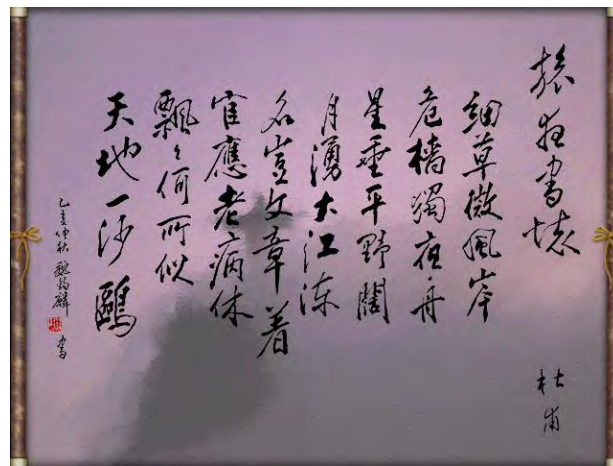 旅夜書懷
杜甫
細草微風岸
危檣獨夜舟
星垂平野闊
月湧大江流
名豈文章着
官應老病休
飄々何所似
天地一沙鷗
亥仲秋 魏 麟 書